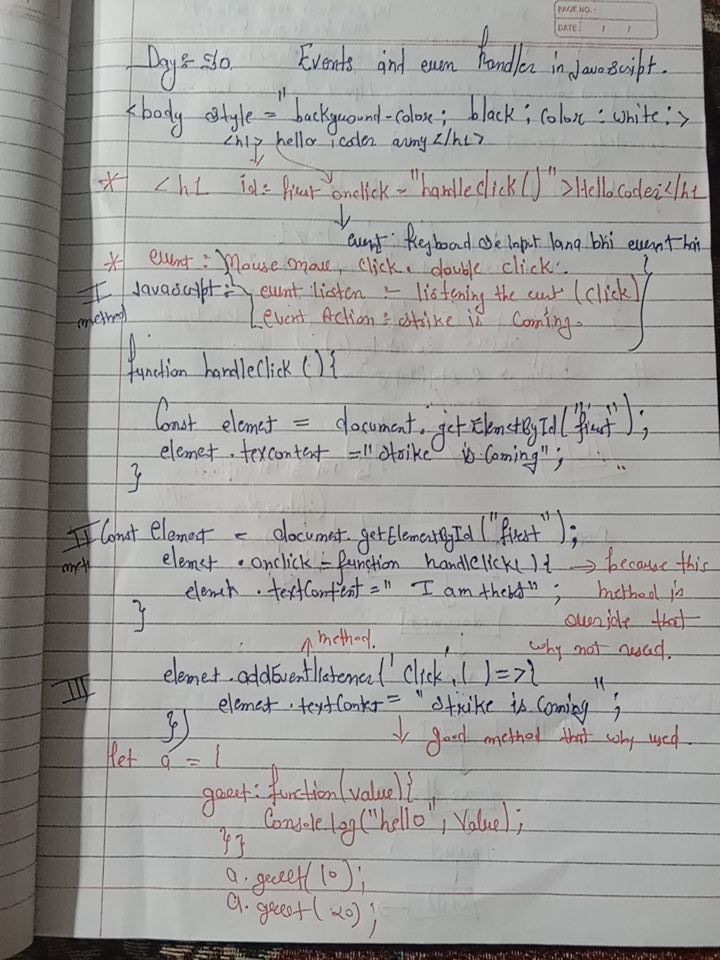 PAGE NO.:
DATE: / /
Day:- 10. Events and even Handler in JavaScript.
<body style = "background-color; black; color: white;>
<h1> hello icoder army </h1>
* <h1 id= first onclick = "handleclick()">Hello Coder</h1
event: Keyboard se input lana bhi event hai
* event: Mouse move, click, double click:.
I method
Javascript:- event listen - listening the event (click)
event Action: strike is Coming.
function handleClick () {
Const elemet = document.getElemetById("first");
elemet.texcontent = "strike is coming";
}
II Const Element = documet.getElementById("first");
elemet.onclick = function handleclick() { → because this
elemet.textContent = " I am the "; method is
} override that
why not used.
↑ method.
III elemet.addEventlistener('click', () => {
elemet.textContet = "strike is Coming";
})
↓ good method that why used.
let a = {
greet: function(value) {
Console.log("hello", Value);
}}
a.greet(10);
a.greet(20);